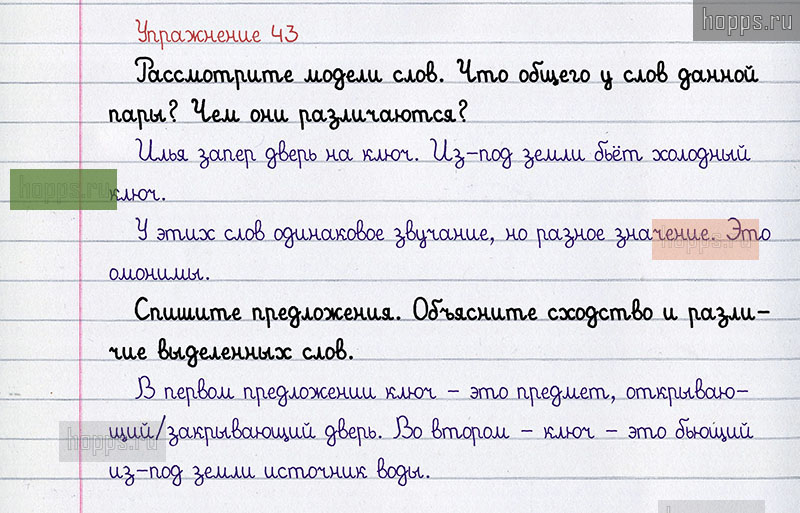 hopps.ru
Упражнение 43
Рассмотрите модели слов. Что общего у слов данной
пары? Чем они различаются?
Илья запер дверь на ключ. Из-под земли бьёт холодный
hopps.ru
ключ.
У этих слов одинаковое звучание, но разное значение. Это
hopps.ru
омонимы.
Спишите предложения. Объясните сходство и разли-
чие выделенных слов.
В первом предложении ключ - это предмет, открываю-
щий/закрывающий дверь. Во втором - ключ - это бьющий
hopps.ru
из-под земли источник воды.